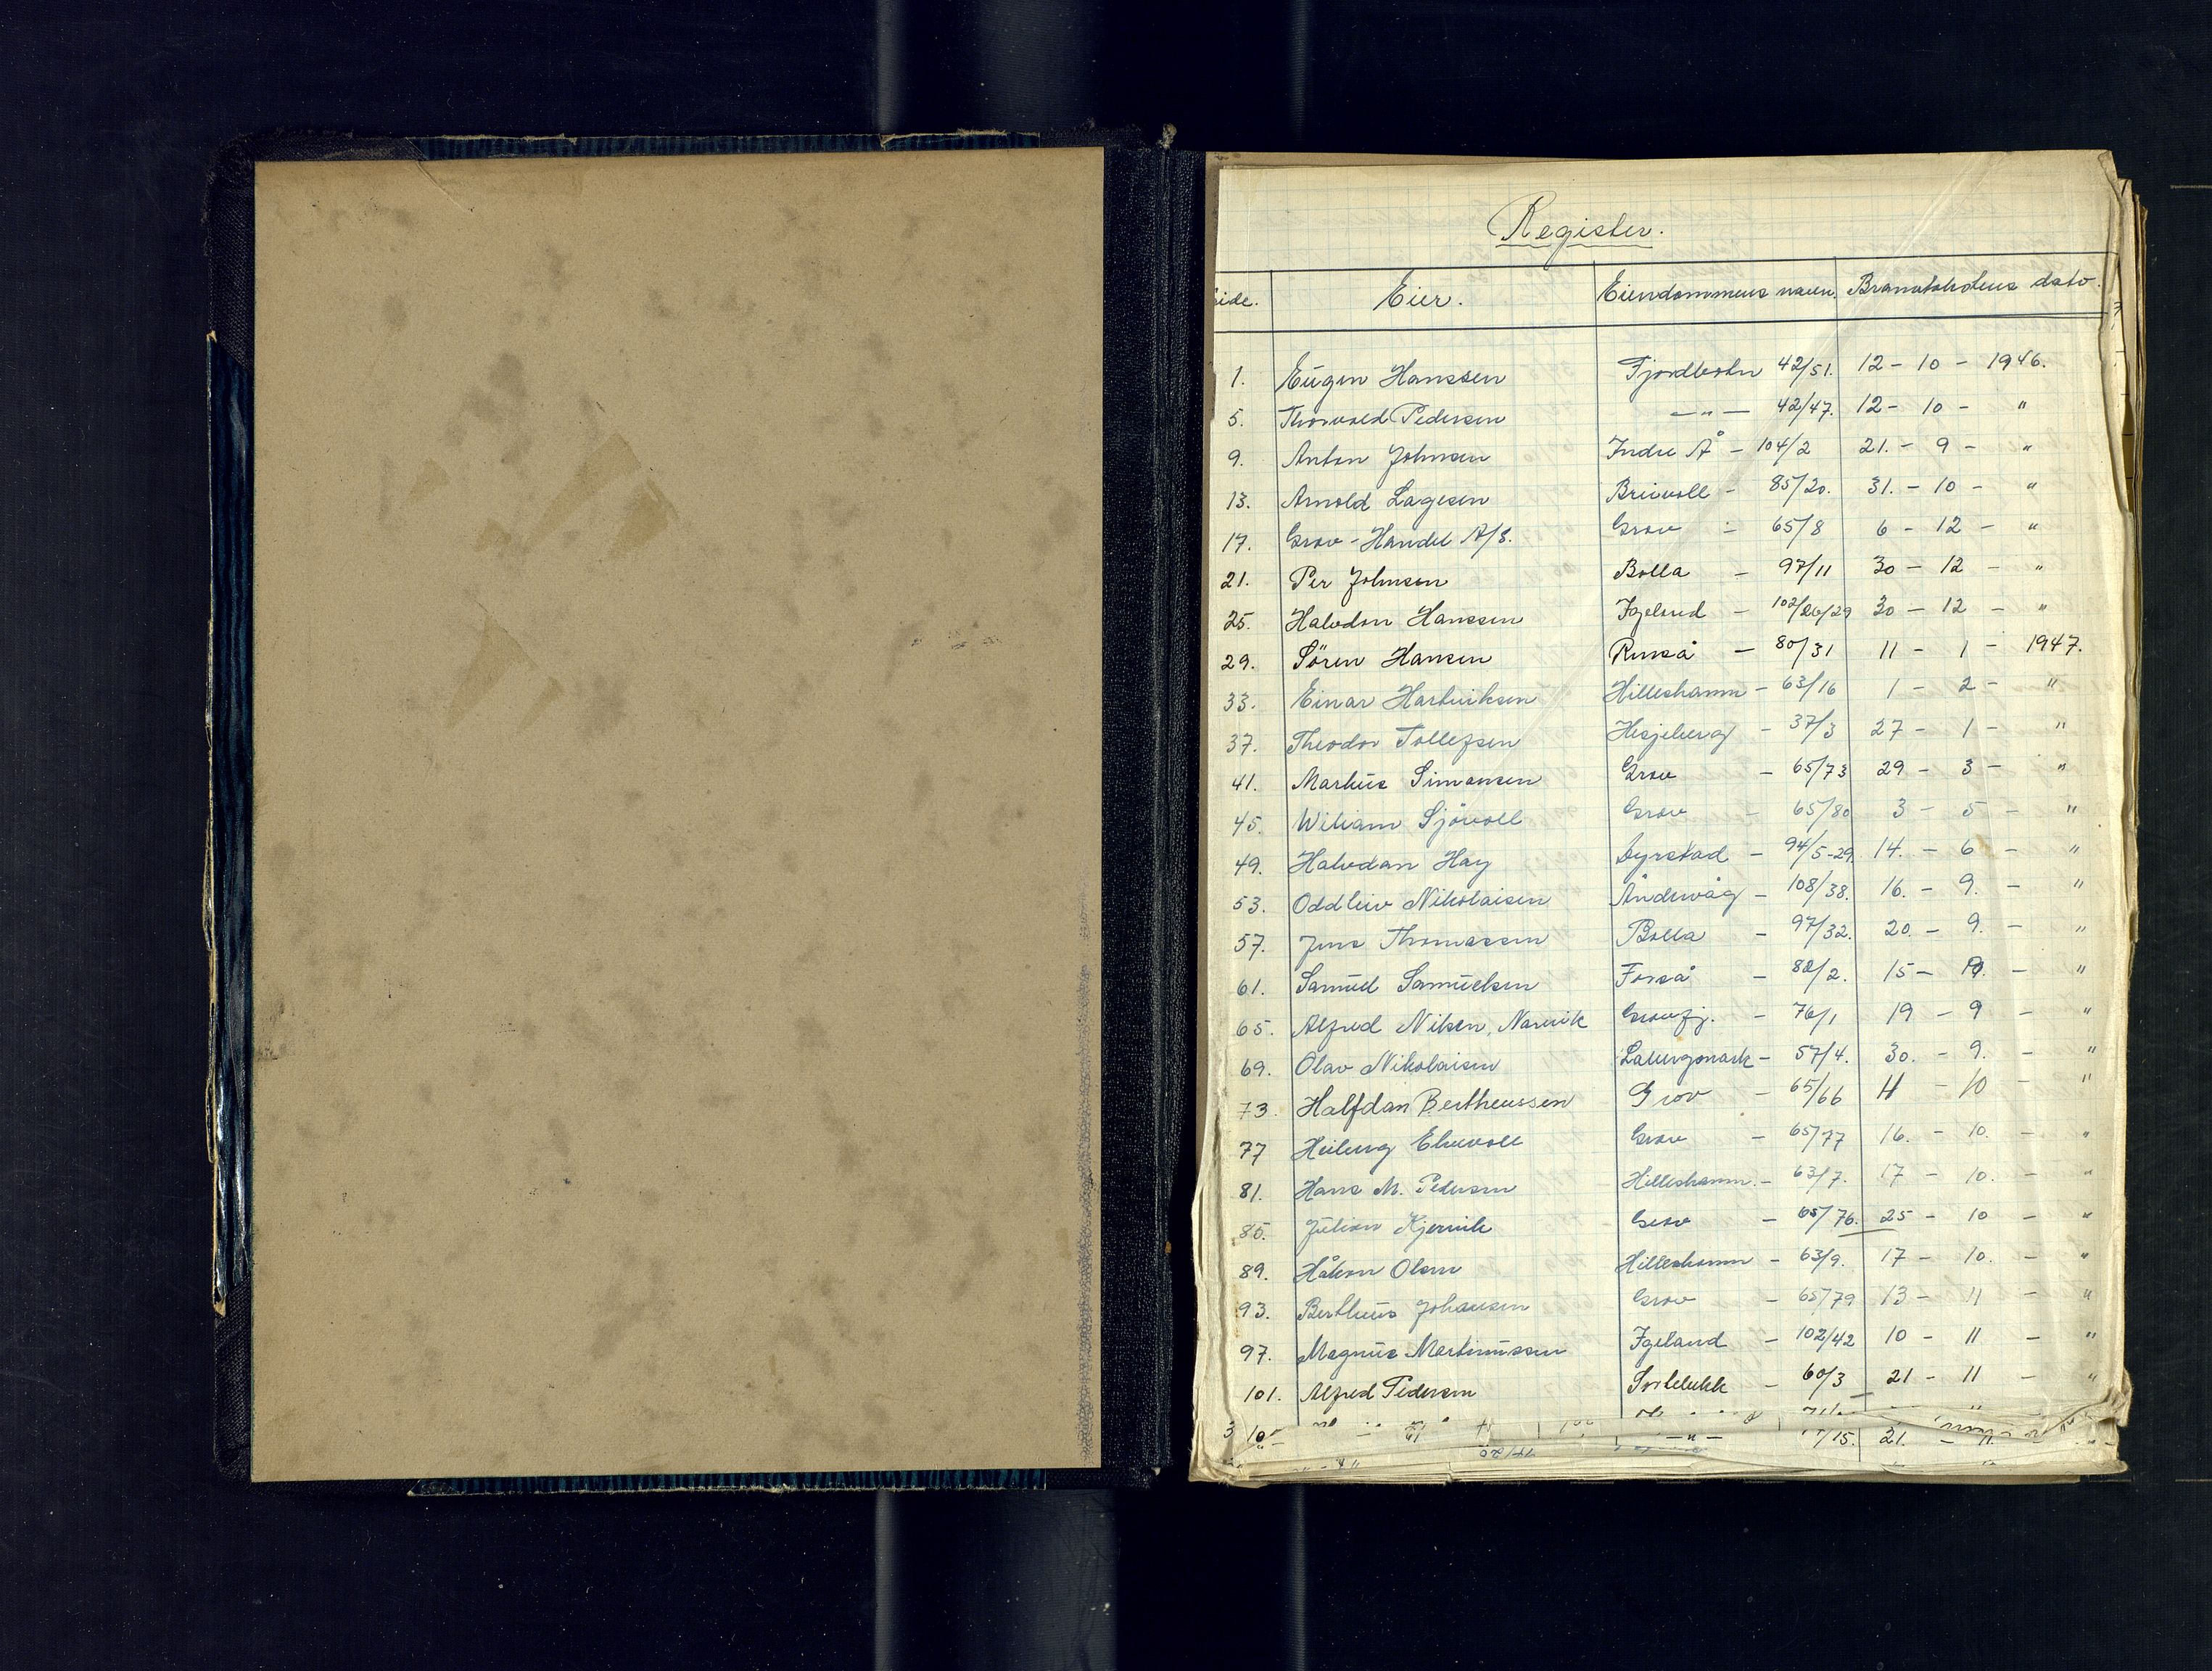 Register.
ide. Eier. Eiendommens navn. Branntakstens dato.
1. Eugen Hanssen Fjordbotn 42/51. 12 - 10 - 1946.
5. Thorvald Pedersen — " — 42/47. 12 - 10 - "
9. Anton Johnsen Indre Å - 104/2 21. - 9 - "
13. Arnold Lagesen Breivoll - 85/20. 31. - 10 - "
17. Grov-Handel A/S. Grov - 65/8 6 - 12 - "
21. Per Johnsen Bolla - 97/11 30 - 12 - "
25. Halvdan Hanssen Igeland - 102/26/29 30 - 12 - "
29. Sören Hansen Renså - 80/31 11 - 1 - 1947.
33. Einar Hartviksen Hilleshamn - 63/16 1 - 2 - "
37. Theodor Tollefsen Hesjeberg - 37/3 27 - 1 - "
41. Markus Simonsen Grov - 65/73 29 - 3 - "
45. Wiliam Sjövoll Grov - 65/80 3 - 5 - "
49. Halvdan Hay Dyrstad - 94/5-29. 14. - 6 - "
53. Oddleiv Nikolaisen Åndervåg - 108/38. 16. - 9. - "
57. Jens Thomassen Bolla - 97/32. 20. - 9. - "
61. Samuel Samuelsen Forså - 82/2. 15 - - "
65. Alfred Nilsen, Narvik Grovfj. - 76/1 19 - 9 - "
69. Olav Nikolaisen Labergsmark - 57/4. 30. - 9. - "
73. Halfdan Bertheussen Grov - 65/66 - 10 - "
77 Heiberg Elvevoll Grov - 65/77 16. - 10. - "
81. Hans M. Pedersen Hilleshamn. - 63/7. 17 - 10. - "
85. Julian Kjervik Grov - 65/76. 25 - 10 - "
89. Håkon Olsen Hilleshamn - 63/9. 17 - 10. - "
93. Bertheus Johansen Grov - 65/79 13 - 11 - "
97. Magnus Martinussen Igeland - 102/42 10 - 11 - "
101. Alfred Pedersen Sørlelukk - 60/3 21 - 11 - "
— " — /15. 21. - 11. - "